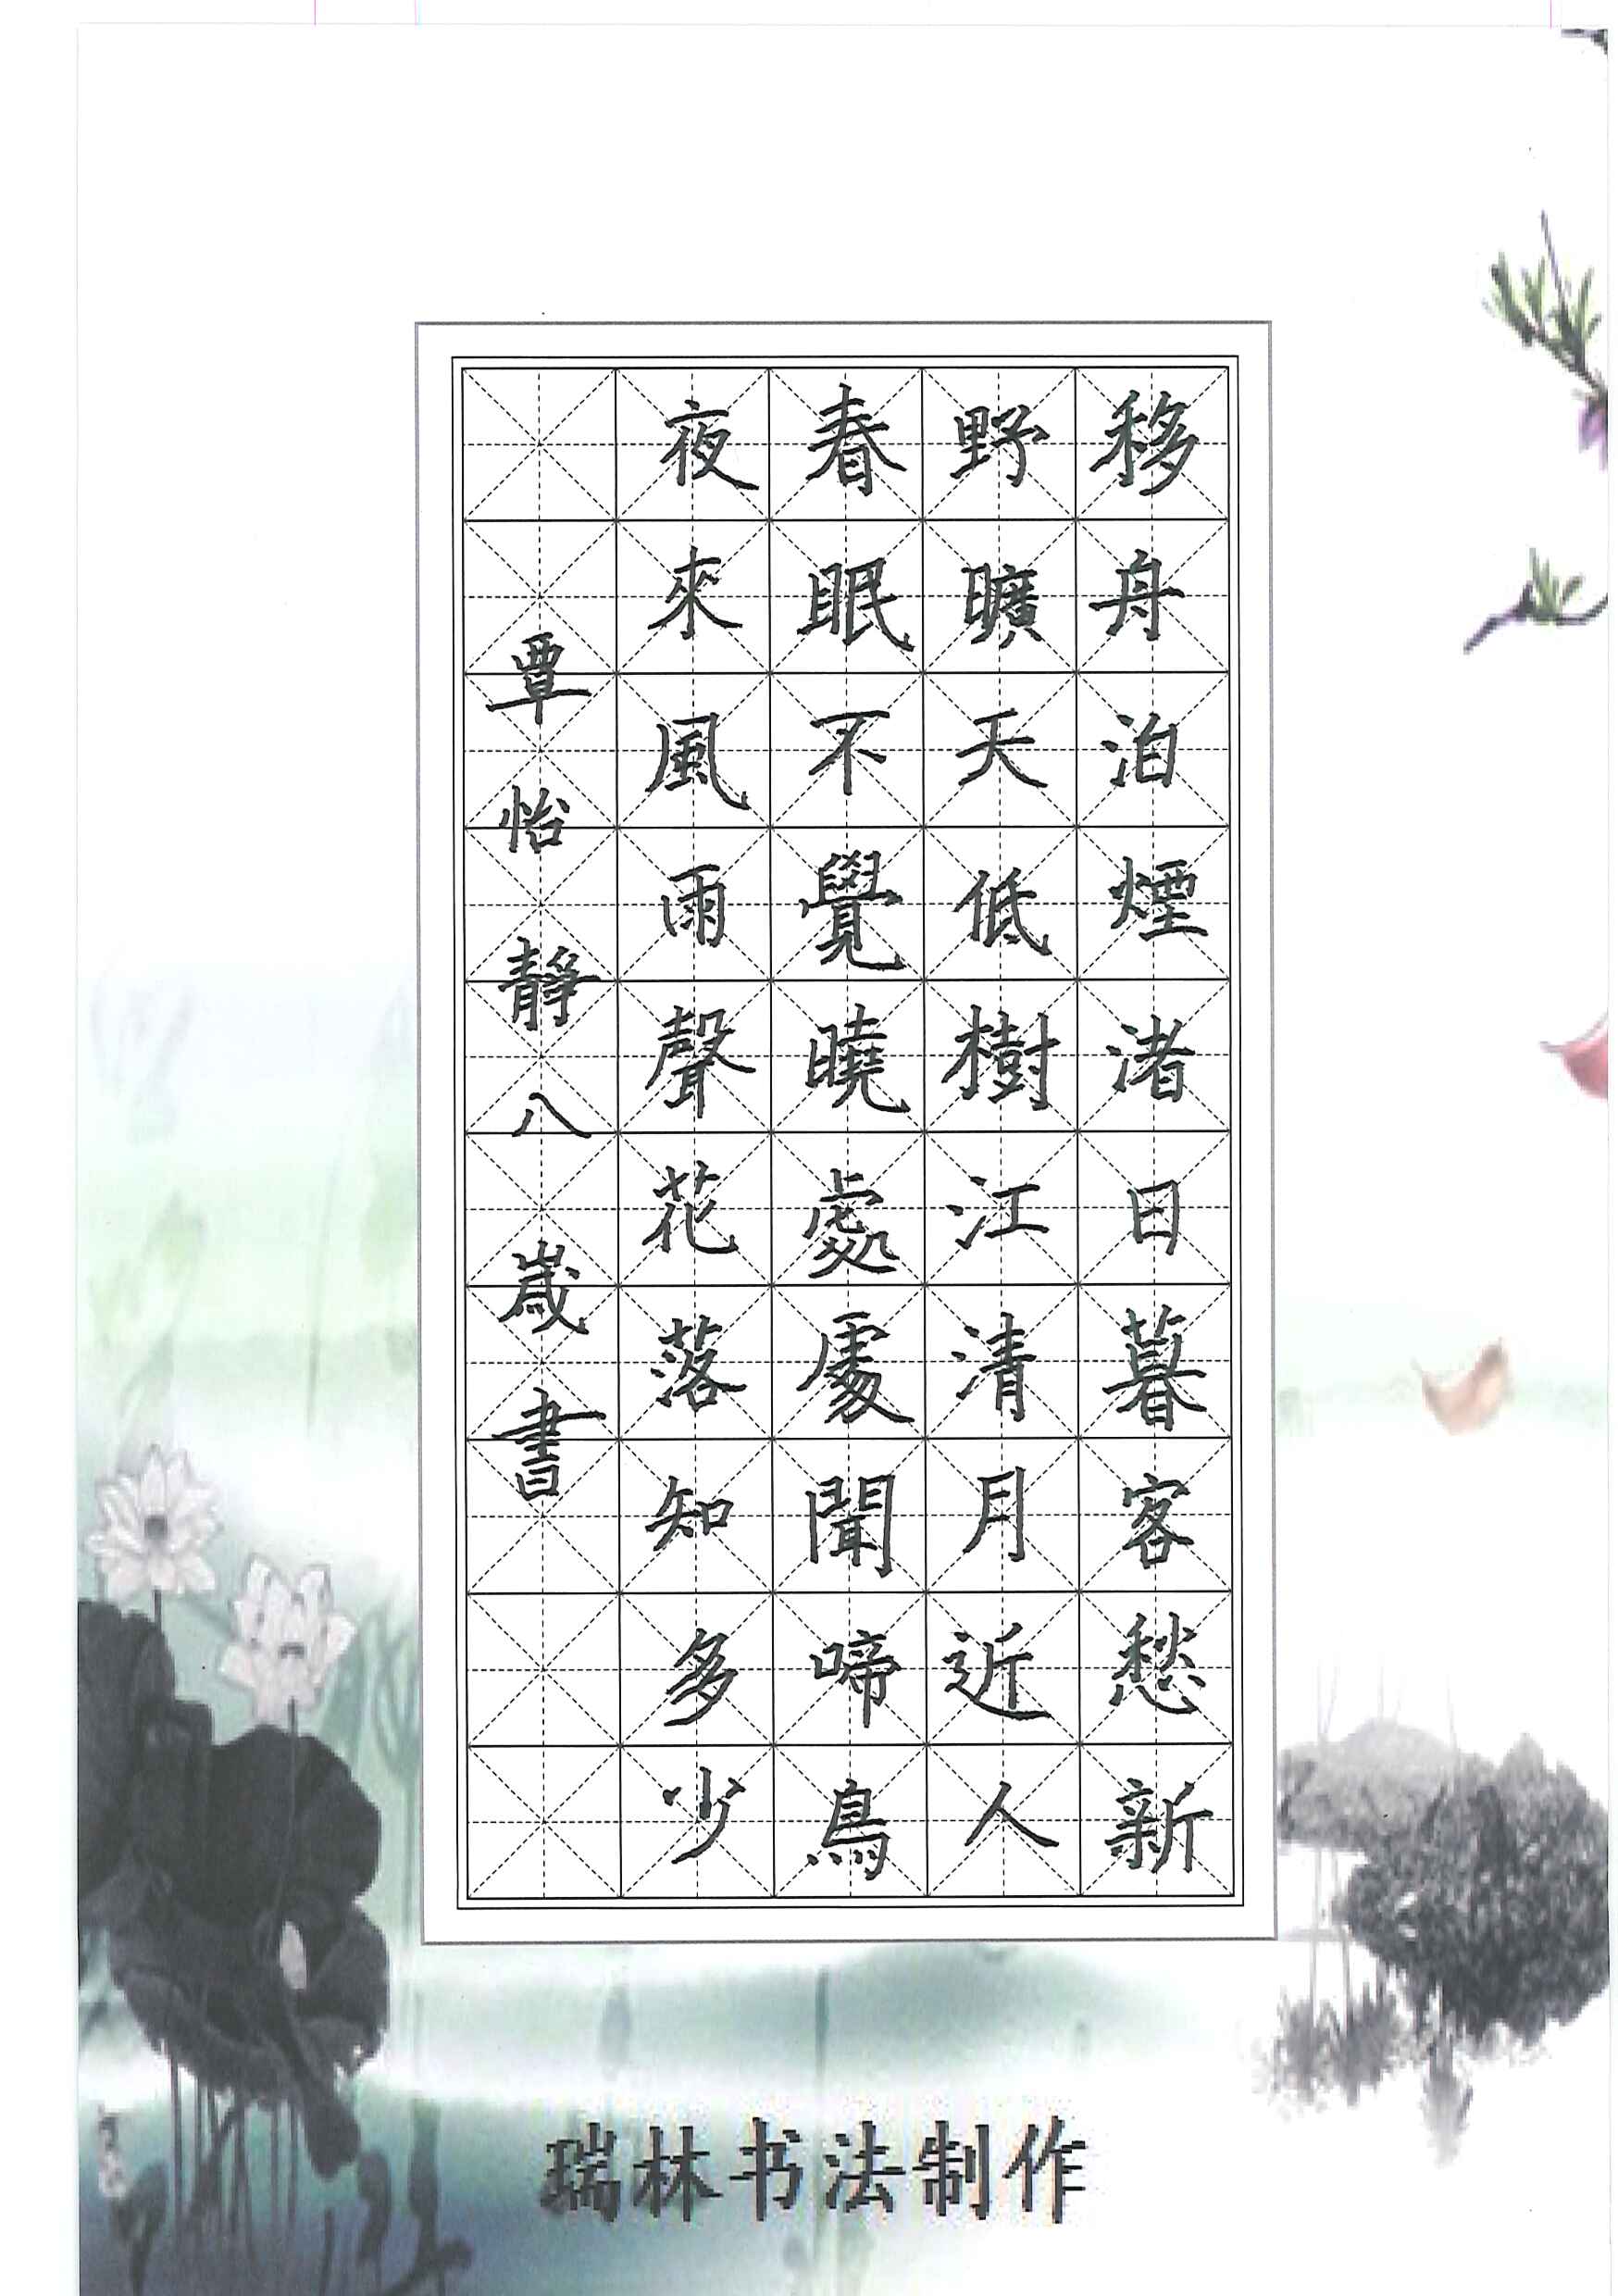 移舟泊煙渚日暮客愁新
野曠天低樹江清月近人
春眠不覺曉處處聞啼鳥
夜來風雨聲花落知多少
覃怡靜八歲書
瑞林书法制作